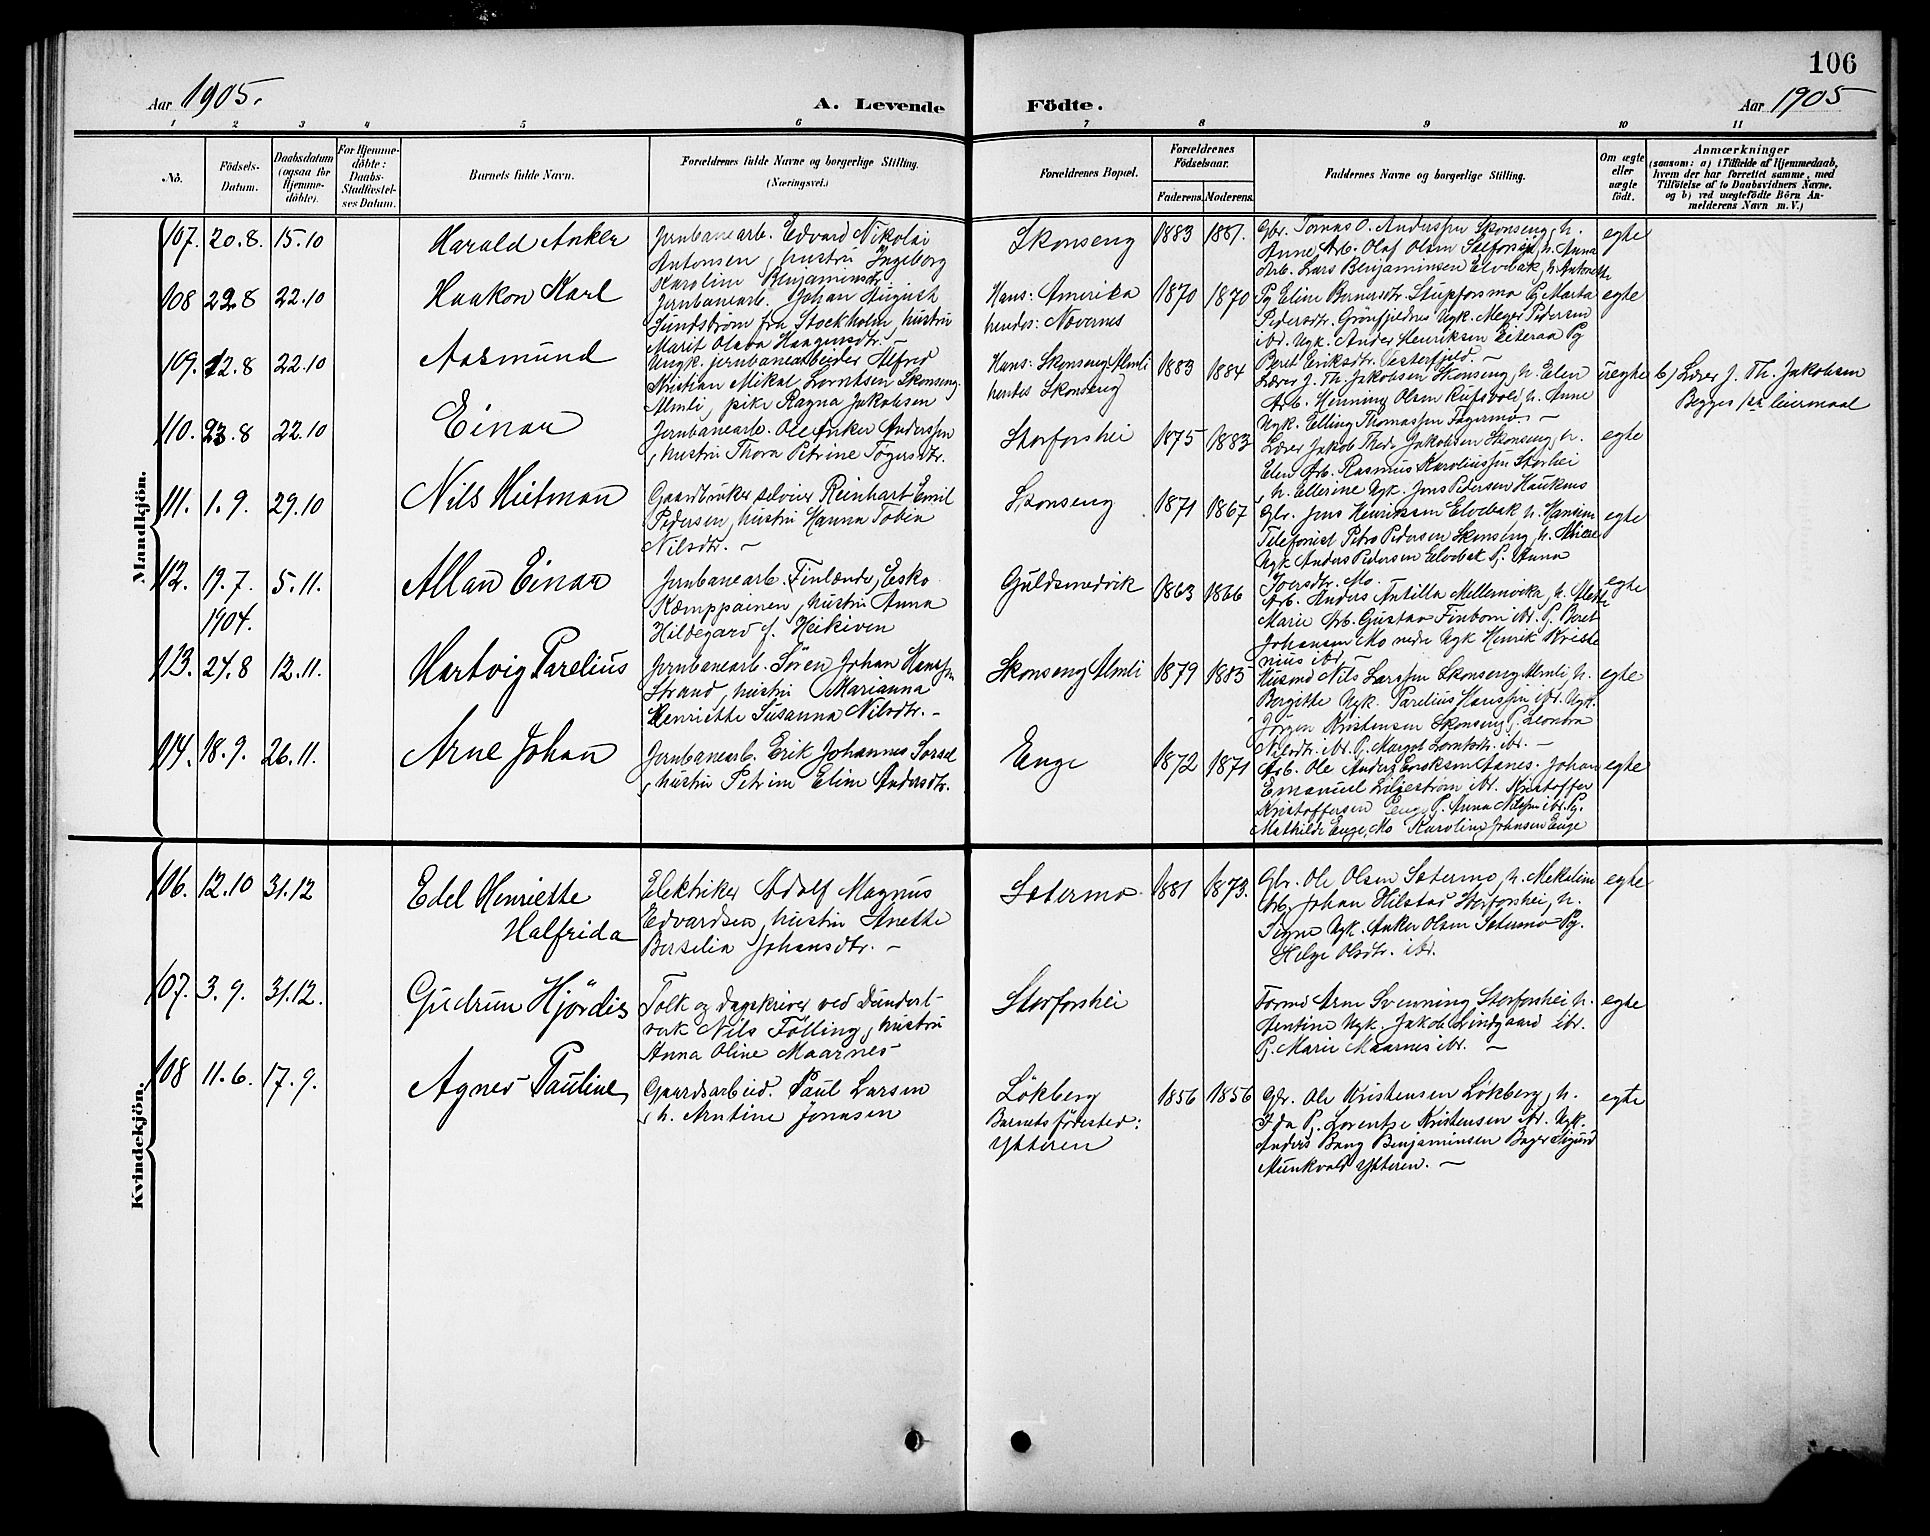 106
Aar 1905.
A. Levende Födte.
Aar 1905
1 2 3 4 5 6 7 8 9 10 11
No.
Födsels-Datum.
Daabsdatum (ogsaa for Hjemmedöbte).
For Hjemmedöbte: Daabs-Stadfæstelses Datum.
Barnets fulde Navn.
Forældrenes fulde Navne og borgerlige Stilling.
(Næringsvei.)
Forældrenes Bopæl.
Forældrenes Födselsaar.
Faderens. Moderens.
Faddernes Navne og borgerlige Stilling.
Om ægte eller uægte födt.
Anmærkninger
(saasom: a) i Tilfælde af Hjemmedaab,
hvem der har forrettet samme, med
Tilföielse af to Daabsvidners Navne.
og b) ved uægtefödte Börn An-
melderens Navn m. V.)
Mandkjön.
107. 20.8. 15.10 Harald Anker
Jernbanearb. Edvard Nikolai
Antonsen, hustru Ingeborg
Karoline Benjaminsdtr.
Skonseng 1883 1881.
Gbr. Tomas O. Anderssen Skonseng, h.
Anne, Arb. Olaf Olsen Selforsli, h. Anna
Arb. Lars Benjaminsen Elvebak, h. Antonette
egte
108 22.8 22.10 Haakon Karl
Jernbanearb. Johan August
Sundström fra Stockholm, hustru
Marit Olava Haagensdtr.
Hans: Amerika
hendes: Nævernes
1870 1870
Pg Eline Bernersdtr. Stupforsmo Pg Marta
Pedersdtr. Grönfjeldnes Ugk. Meyer Pedersen
ibr. Ugk. Ander Henriksen Eiteraa Pg
Beret Eriksdtr. Vesterfjeld. –
egte
109. 12.8 22.10 Aasmund
Ungk. jernbanearbeider Alfred
Kristian Mikal Lorntsen Skonseng
Almli, pike Ragna Jakobsen
Hans: Skonseng Almli
hendes Skonseng
1883 1884
Lærer J. Th. Jakobsen Skonseng, h. Elen
Arb. Henning Olsen Rufsvold h. Anne
Ugk. Elling Thomassen Fagermo. –
uegte
b) Lærer J. Th. Jakobsen
Begges 1ste leiermaal
110. 23.8 22.10 Einar
Jernbanearb. Ole Anker Anderssen
, hustru Thora Petrine Tögersdtr.
Storforshei 1875 1883
Lærer Jakob Thode Jakobsen Skonseng, h.
Elen Arb. Rasmus Karoliussen Storhei
, h. Ellerine Ugk. Jens Pedersen Haukenes
egte
111. 1.9. 29.10 Nils Hietman
Gaardbruker selveier Reinhart Emil
Pedersen, hustru Hanna Tobia
Nilsdtr. –
Skonseng 1871 1867
Gbr. Jens Henriksen Elvebak h. Hansine
Telefonist Petro Pedersen Skonseng, h. Alvine
Ugk. Anders Pedersen Elvebak Pg. Anna
Iversdtr. Mo.
egte
112. 19.7. 1904. 5.11. Allan Einar
Jernbanearb. Finlænder, Esko
Kæmppainen, hustru Anna
Hildegard f. Heikiven
Guldsmedvik 1863 1866
Arb. Anders Antilla Mellemvika, h. Mette
Marie Arb. Gustav Finborn ibr. Pg. Beret
Johansen Mo nedre Ugk Henrik Kriste
nius ibr. –
egte
113. 27.8 12.11. Hartvig Parelius
Jernbanearb. Sören Johan Hanssen
Strand, hustru Marianna
Henriette Susanna Nilsdtr. –
Skonseng Almli 1879 1883
Husmd Nils Larssen Skonseng Almli h.
Bergitte Ugk. Parelius Hanssen ibr. Ugk.
Jörgen Kristensen Skonseng, Leonora
Nilsdtr. ibr. Pg. Margot Lorntsdtr. ibr. –
egte
114. 18.9. 26.11. Arne Johan
Jernbanearb. Erik Johannes Sorsel
, hustru Petrine Eline Andersdtr.
Enge 1872 1871
Arb. Ole Anders Eriksen Aanes. Johan
Emanuel Liljeström ibr. Kristoffer
Kristoffersen Enge, P. Anna Nilssen ibr. Pg.
Mathilde Enge, Mo Karoline Johansen Enge
egte
Kvindekjön.
106. 12.10 31.12 Edel Henriette
Halfrida
Elektriker Adolf Magnus
Edvardsen, hustru Anette
Berselia Johansdtr. –
Sætermo 1881 1873.
Gbr. Ole Olsen Sætermo, h. Mekeline
Arb. Johan Hilstad Storforshei, h.
Signe Ugk. Anker Olsen Sætermo Pg.
Helge Olsdtr. ibr.
egte
107. 3.9. 31.12. Gudrun Hjördis
Tolk og dagskriver ved Dunder-
verk Nils Fölling, hustru
Anna Oline Maarnes
Storforshei
Formd Arne Svenning Storforshei h.
Arntine Ugk. Jakob Lindgaard ibr.
Pg. Marie Maarnes ibr. –
egte
108 11.6. 17.9. Agnes Pauline
Gaardsarbeid. Paul Larsen
, h. Arntine Jonasen
Lökberg
Barnets födested:
Ytteren
1856 1856
Gbr. Ole Kristensen Lökberg, h.
Ida Pg. Lorentse Kristensen ibr. Ugk.
Anders Bang Benjaminsen Bager Sigurd
Munkvold Ytteren. –
egte